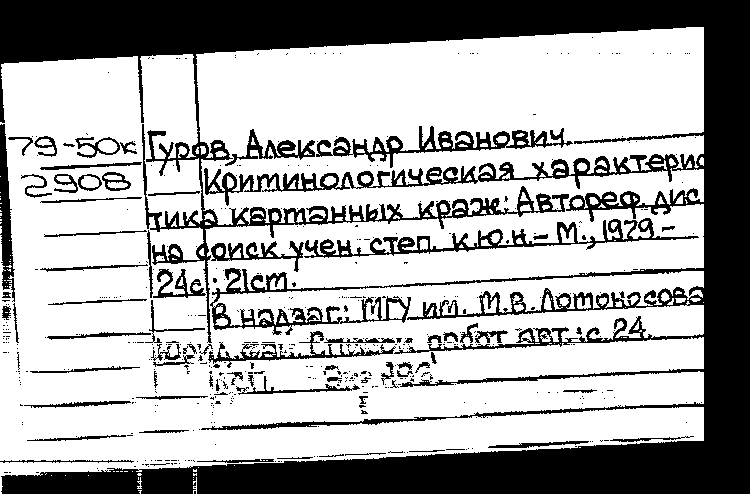 79-50к Гуров, Александр Иванович.
2908 Криминологическая характерис
тика карманных краж: Автореф. дис
на соиск. учен. степ. к.ю.н. – М., 1979. –
24с.; 21см.
В надзаг.: МГУ им. М.В. Ломоносова
Юрид. фак. Список работ авт.: с. 24.